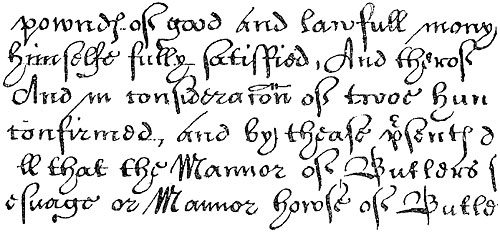 pownds of good and lawfull mony
himselfe fully satisfied, And therof
And in consideracon of twoe hun
confirmed, and by thease psents d
ll that the Mannor of Butlers s
esuage or Mannor howse of Butle